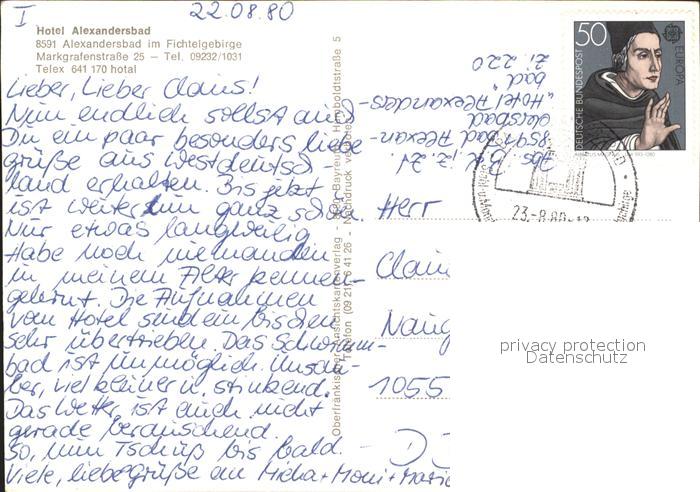 I
22.08.80
Hotel Alexandersbad
8591 Alexandersbad im Fichtelgebirge
Markgrafenstraße 25 — Tel. 09232/1031
Telex 641 170 hotal
Lieber, Lieber Claus!
Nun endlich sollst auch
Du ein paar besonders liebe
grüße aus Westdeutsch
land erhalten. Bis jetzt
ist weiterhin ganz schön.
Nur etwas langweilig
Habe noch niemanden
in meinem Alter kennen-
gelernt. Die Aufnahmen
vom Hotel sind ein bischen
sehr übertrieben. Das Schwimm-
bad ist unmöglich. Unsau-
ber, viel kleiner u. stinkend.
Das Wetter ist auch nicht
gerade berauschend.
So, nun Tschüß bis bald.
Viele, liebe grüße an Micha + Moni + Mario
Oberfränkischer Ansichtskartenverlag Bayreuth Humboldtstraße 5
Telefon (09 21) 6 41 26 - Nachdruck
Abs. z. Zt.
8591 Bad Alexan-
dersbad
"Hotel Alexanders-
bad"
Zi. 220
50
DEUTSCHE BUNDESPOST
EUROPA
23.-8.80
Herr
Claus
Naug
1055
privacy protection
Datenschutz